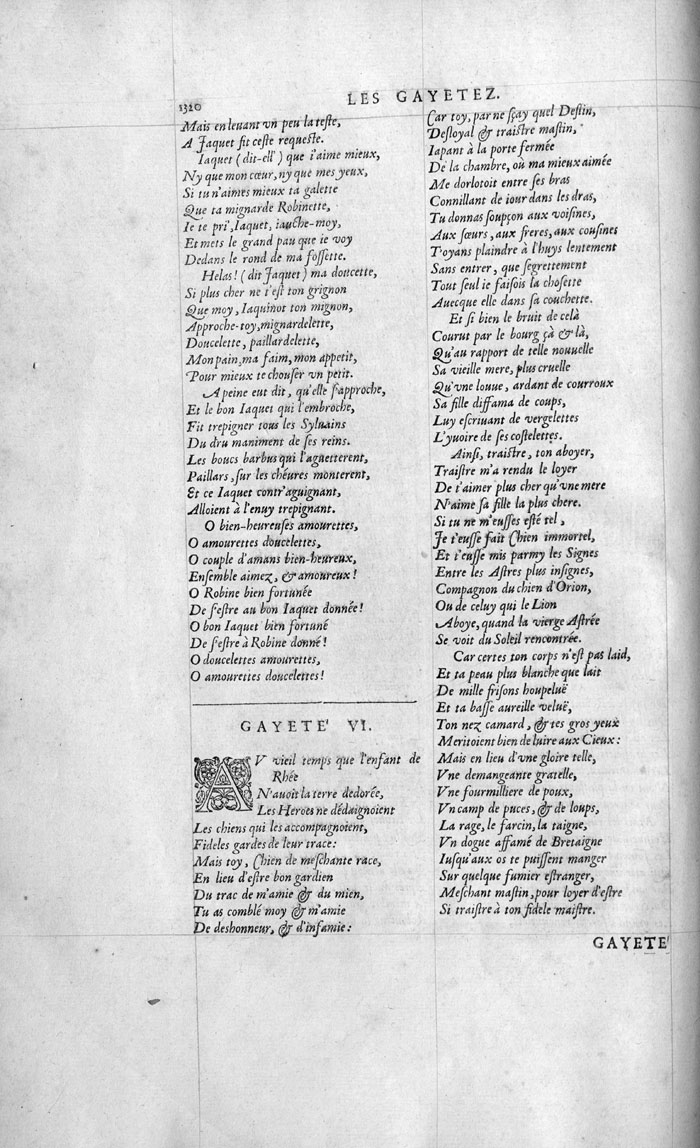 1320
LES GAYETEZ.
Mais en leuant vn peu la teste,
A Jaquet fit ceste requeste.
Iaquet (dit-ell') que i'aime mieux,
Ny que mon cœur, ny que mes yeux,
Si tu n'aimes mieux ta galette
Que ta mignarde Robinette,
Ie te pri', Iaquet, iauche-moy,
Et mets le grand pau que ie voy
Dedans le rond de ma fossette.
Helas! (dit Jaquet) ma doucette,
Si plus cher ne t'est ton grignon
Que moy, Iaquinot ton mignon,
Approche-toy, mignardelette,
Doucelette, paillardelette,
Mon pain, ma faim, mon appetit,
Pour mieux te chouser vn petit.
A peine eut dit, qu'elle s'approche,
Et le bon Iaquet qui l'embroche,
Fit trepigner tous les Syluains
Du dru maniment de ses reins.
Les boucs barbus qui l'aguetterent,
Paillars, sur les chéures monterent,
Et ce Iaquet contr'aguignant,
Alloient à l'enuy trepignant.
O bien-heureuses amourettes,
O amourettes doucelettes,
O couple d'amans bien-heureux,
Ensemble aimez, & amoureux!
O Robine bien fortunée
De s'estre au bon Iaquet donnée!
O bon Iaquet bien fortuné
De s'estre à Robine donné!
O doucelettes amourettes,
O amourettes doucelettes!
GAYETE' VI.
AV vieil temps que l'enfant de
Rhée
N'auoit la terre dedorée,
Les Heroes ne dédaignoient
Les chiens qui les accompagnoient,
Fideles gardes de leur trace:
Mais toy, Chien de meschante race,
En lieu d'estre bon gardien
Du trac de m'amie & du mien,
Tu as comblé moy & m'amie
De deshonneur, & d'infamie:
Car toy, par ne sçay quel Destin,
Desloyal & traistre mastin,
Iapant à la porte fermée
De la chambre, où ma mieux aimée
Me dorlotoit entre ses bras
Connillant de iour dans les dras,
Tu donnas soupçon aux voisines,
Aux sœurs, aux freres, aux cousines
T'oyans plaindre à l'huys lentement
Sans entrer, que segrettement
Tout seul ie faisois la chosette
Auecque elle dans sa couchette.
Et si bien le bruit de celà
Courut par le bourg çà & là,
Qu'au rapport de telle nouuelle
Sa vieille mere, plus cruelle
Qu'vne louue, ardant de courroux
Sa fille diffama de coups,
Luy escriuant de vergelettes
L'yuoire de ses costelettes.
Ainsi, traistre, ton aboyer,
Traistre m'a rendu le loyer
De t'aimer plus cher qu'vne mere
N'aime sa fille la plus chere.
Si tu ne m'eusses esté tel,
Je t'eusse fait Chien immortel,
Et t'eusse mis parmy les Signes
Entre les Astres plus insignes,
Compagnon du chien d'Orion,
Ou de celuy qui le Lion
Aboye, quand la vierge Astrée
Se voit du Soleil rencontrée.
Car certes ton corps n'est pas laid,
Et ta peau plus blanche que lait
De mille frisons houpeluë
Et ta basse aureille veluë,
Ton nez camard, & tes gros yeux
Meritoient bien de luire aux Cieux:
Mais en lieu d'vne gloire telle,
Vne demangeante gratelle,
Vne fourmilliere de poux,
Vn camp de puces, & de loups,
La rage, le farcin, la taigne,
Vn dogue affamé de Bretaigne
Iusqu'aux os te puissent manger
Sur quelque fumier estranger,
Meschant mastin, pour loyer d'estre
Si traistre à ton fidele maistre.
GAYETE'